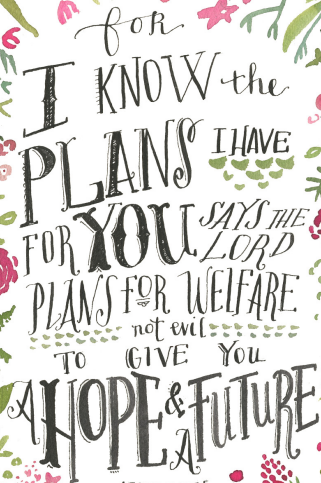 for
I KNOW the
PLANS I HAVE
FOR YOU SAYS THE
LORD
PLANS FOR WELFARE
not evil
TO GIVE YOU
A HOPE & A FUTURE